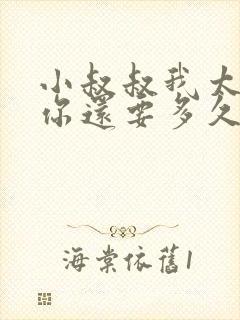 小叔叔我太
你還要多久
海棠依舊1